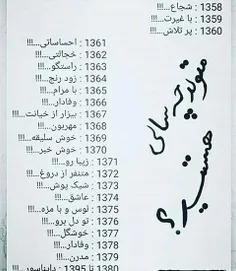 1358 : شجاع...!!!
1359 : با غیرت...!!!
1360 : پر تلاش...!!!
1361 : احساساتی...!!!
1362 : خجالتی...!!!
1363 : راستگو...!!!
1364 : زود رنج...!!!
1365 : با مرام...!!!
1366 : وفادار...!!!
1367 : بیزار از خیانت...!!!
1368 : مهربون...!!!
1369 : خوش سلیقه...!!!
1370 : خوش خبر...!!!
1371 : زیبا رو...!!!
1372 : متنفر از دروغ...!!!
1373 : شیک پوش...!!!
1374 : عاشق...!!!
1375 : لوس و با مزه...!!!
1376 : تو دل برو...!!!
1377 : خوشگل...!!!
1378 : وفادار...!!!
1379 : مدرن...!!!
1380 تا 1395 : دایناسور...!!!
متولد چه سالی
هستید؟